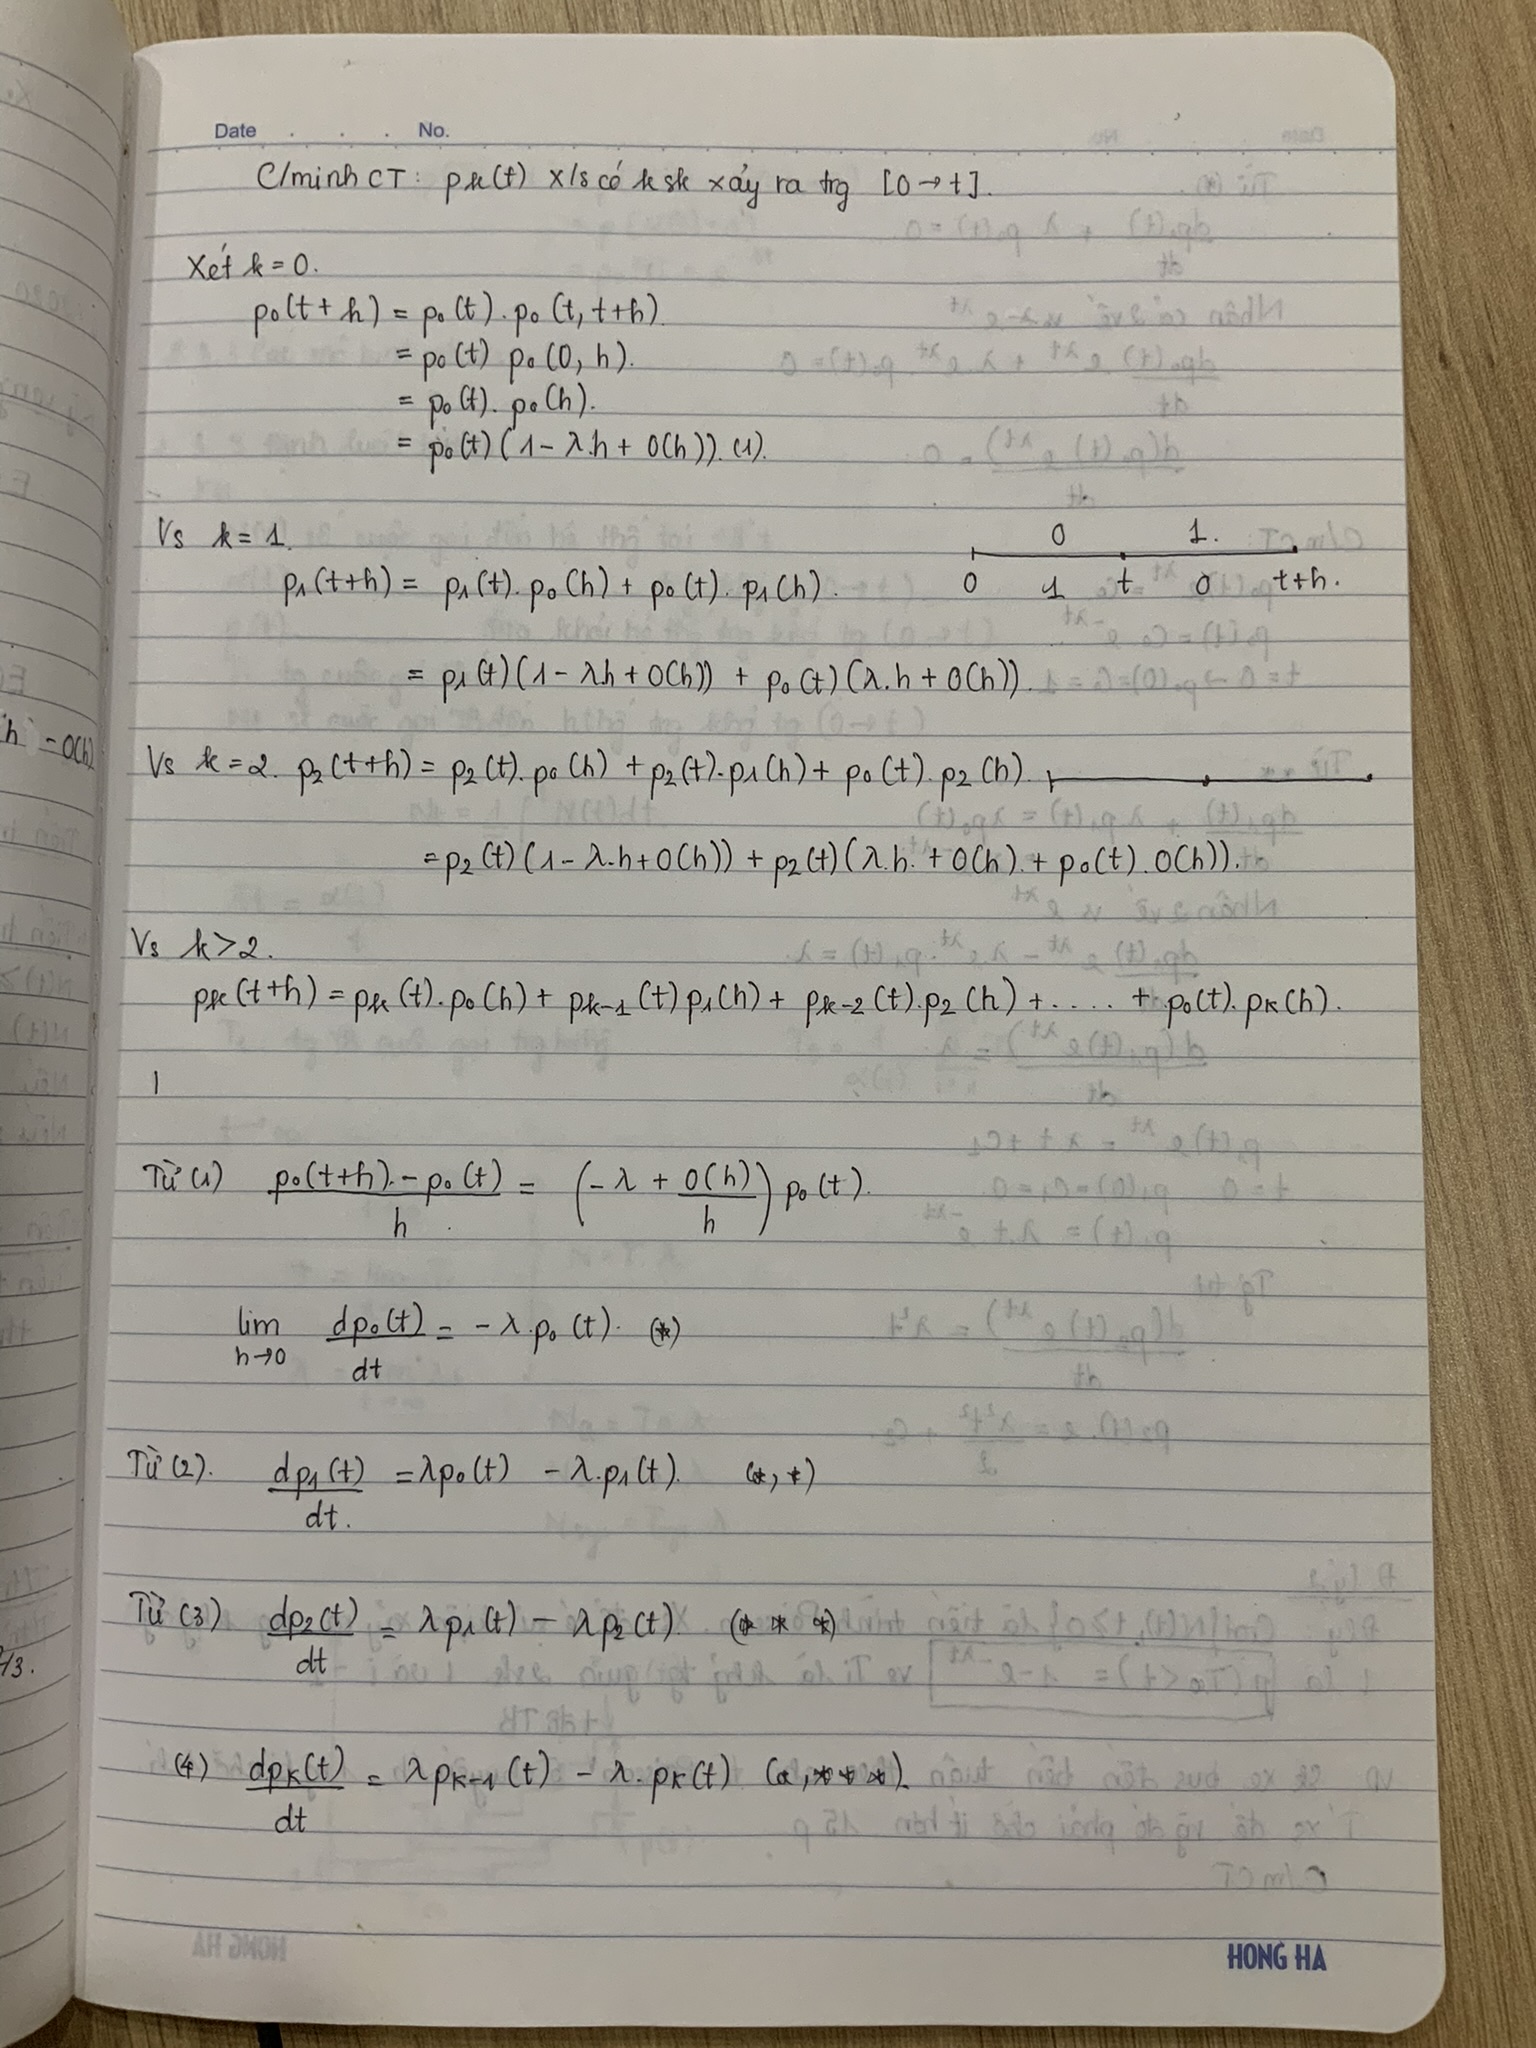 Date . . . No.
C/minh CT: pk(t) x/s có k sk xảy ra trg [0→t].
Xét k = 0.
p0(t+h) = p0(t). p0(t, t+h)
= p0(t) p0(0, h).
= p0(t). p0(h).
= p0(t)(1-λ.h + O(h)). (1).
Vs k = 1.
0 1.
0 1 t 0 t+h.
p1(t+h) = p1(t). p0(h) + p0(t). p1(h).
= p1(t)(1-λh + O(h)) + p0(t)(λ.h + O(h)).
Vs k=2. p2(t+h) = p2(t). p0(h) + p2(t). p1(h) + p0(t). p2(h).
= p2(t)(1-λ.h+O(h)) + p2(t)(λ.h. + O(h). + p0(t). O(h)).
Vs k>2.
pk(t+h) = pk(t). p0(h) + pk-1(t) p1(h) + pk-2(t). p2(h) + .... + p0(t). pk(h).
Từ (1) (p0(t+h). - p0(t))/h = (-λ + O(h)/h) p0(t).
lim h→0 dp0(t)/dt = -λ.p0(t). (*)
Từ (2). dp1(t)/dt. = λp0(t) - λ.p1(t). (*,*)
Từ (3) dp2(t)/dt = λp1(t) - λp2(t). (* * *)
(4) dpk(t)/dt = λpk-1(t) - λ.pk(t) (*,* * *).
HONG HA